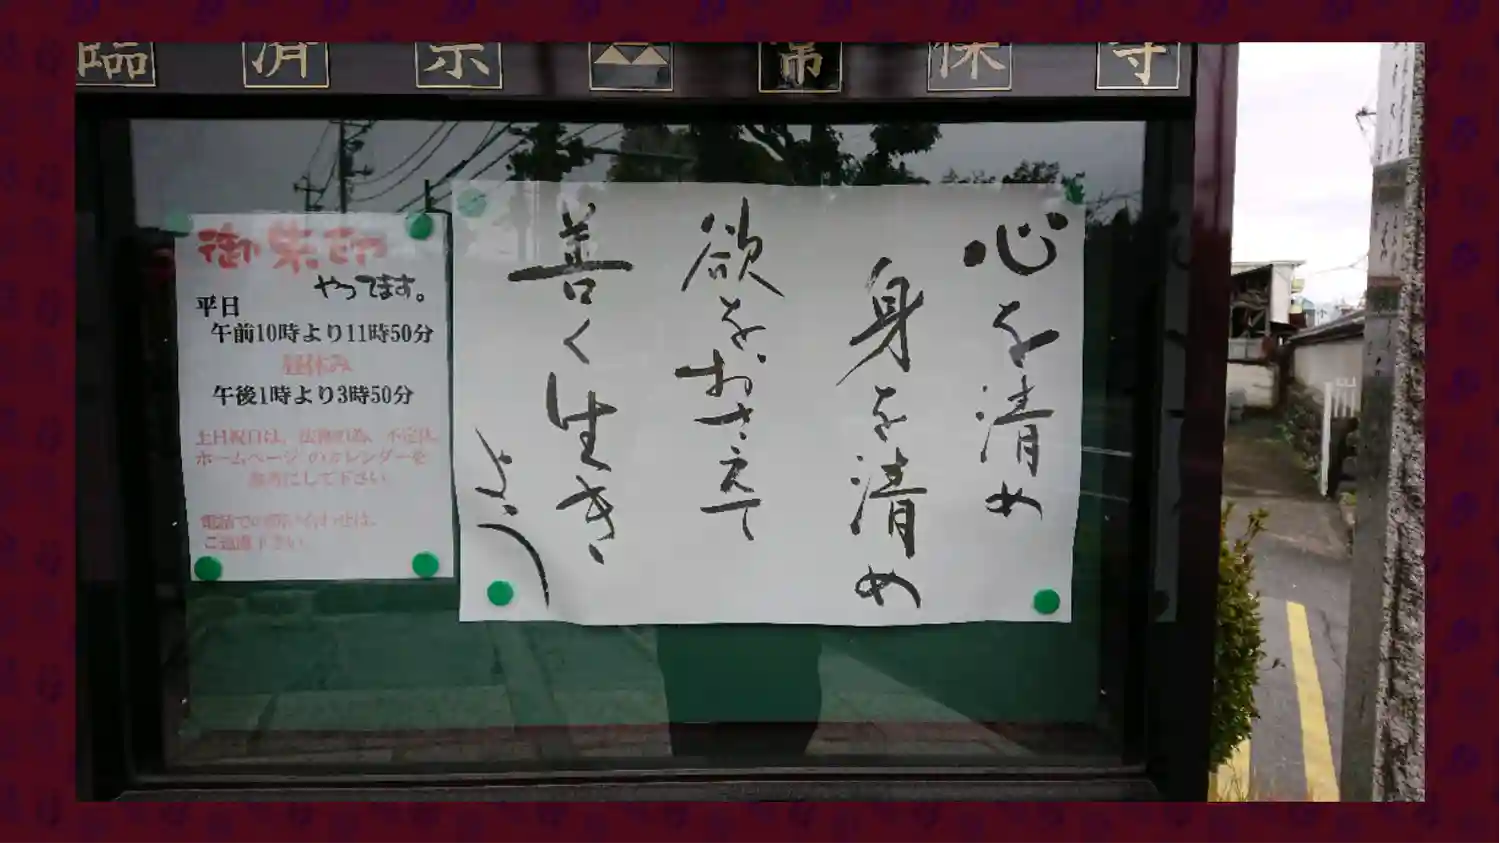 臨済宗 常保寺
心を清め
身を清め
欲をおさえて
善く生き
よう
御朱印
やってます。
平日
午前10時より11時50分
昼休み
午後1時より3時50分
土日祝日は、法務の為、不定休。
ホームページのカレンダーを
参考にして下さい。
電話での問い合わせは、
ご遠慮下さい。